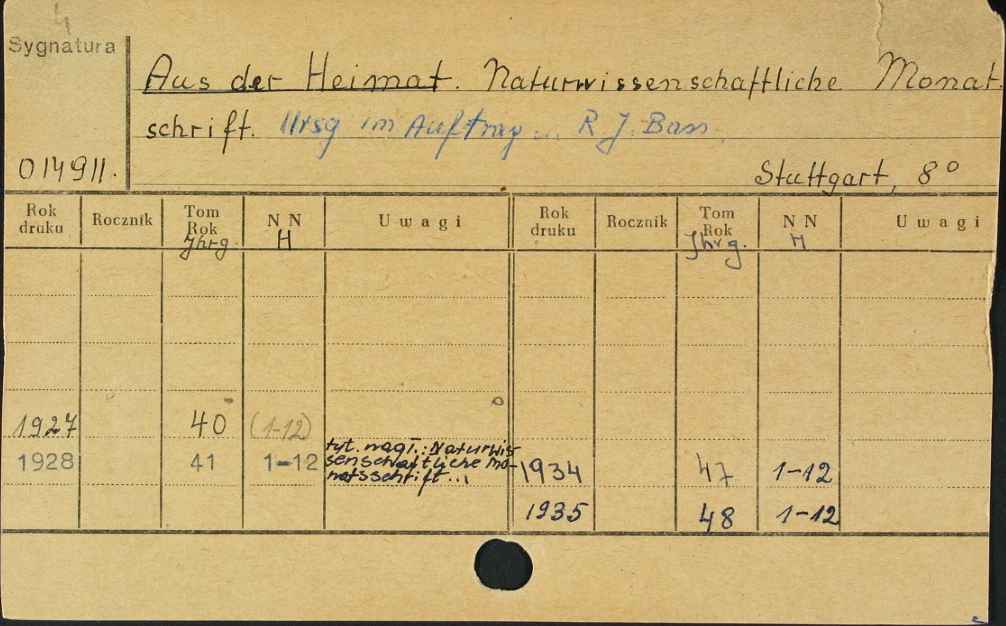 4
Sygnatura
Aus der Heimat. Naturwissenschaftliche Monat
schrift. Hrsg im Auftrag... R J. Bass
014911.
Stuttgart, 8°
Rok druku Rocznik Tom Rok Jhrg. N N H Uwagi Rok druku Rocznik Tom Rok Jhrg. N N H Uwagi
1927 40 (1-12)
tyt. nagł.: Naturwis-
1928 41 1-12 senschaftliche Mo- 1934 47 1-12
natsschrift...
1935 48 1-12